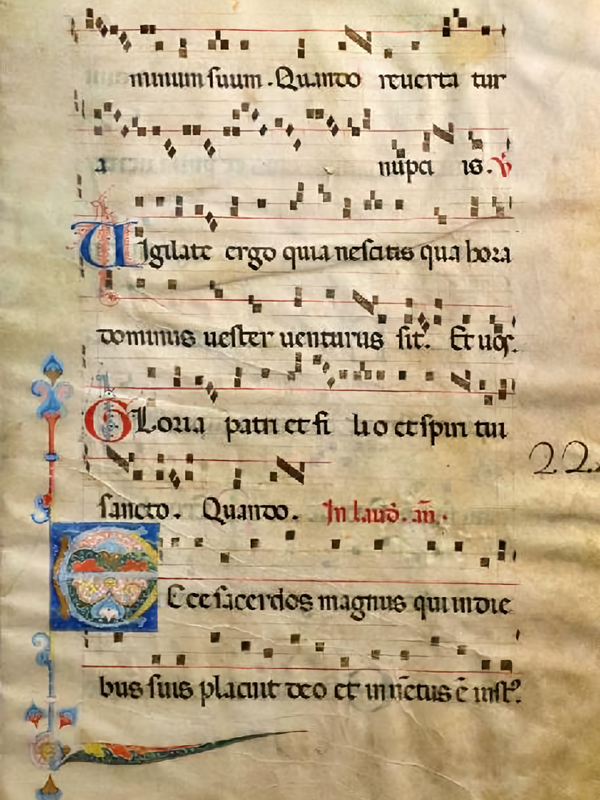 minum suum. Quando reverta tur
a nupci is. ℣
Uigilate ergo quia nescitis qua hora
dominus uester uenturus sit. Et uos.
GLoria patri et fi lio et spiri tui
sancto. Quando. In laud. an.
22
Ecce sacerdos magnus qui in die
bus suis placuit deo et inuētus ē iust9.